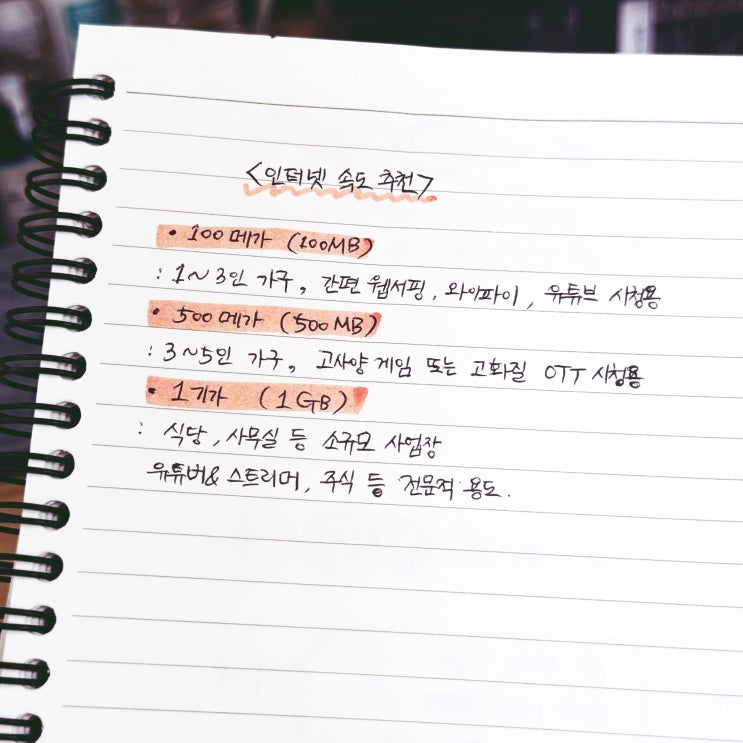 <인터넷 속도 추천>
• 100메가 (100MB)
: 1~3인 가구, 간편 웹서핑, 와이파이, 유튜브 시청용
• 500메가 (500MB)
: 3~5인 가구, 고사양 게임 또는 고화질 OTT 시청용
• 1기가 (1GB)
: 식당, 사무실 등 소규모 사업장
유튜버&스트리머, 주식 등 전문적 용도.